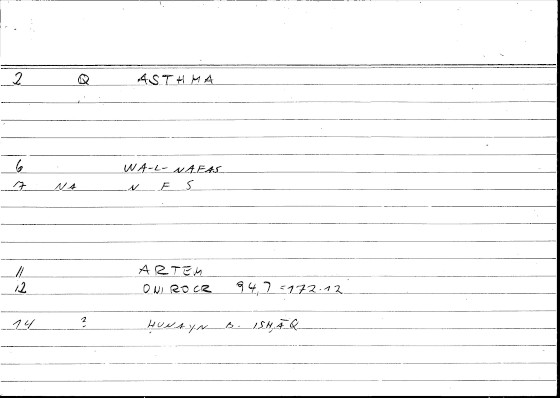 2 Q ASTHMA
6 WA-L-NAFAS
7 NA N F S
11 ARTEM
12 ONIROCR 94,7 = 172.12
14 ? ḤUNAYN B. ISḤĀQ